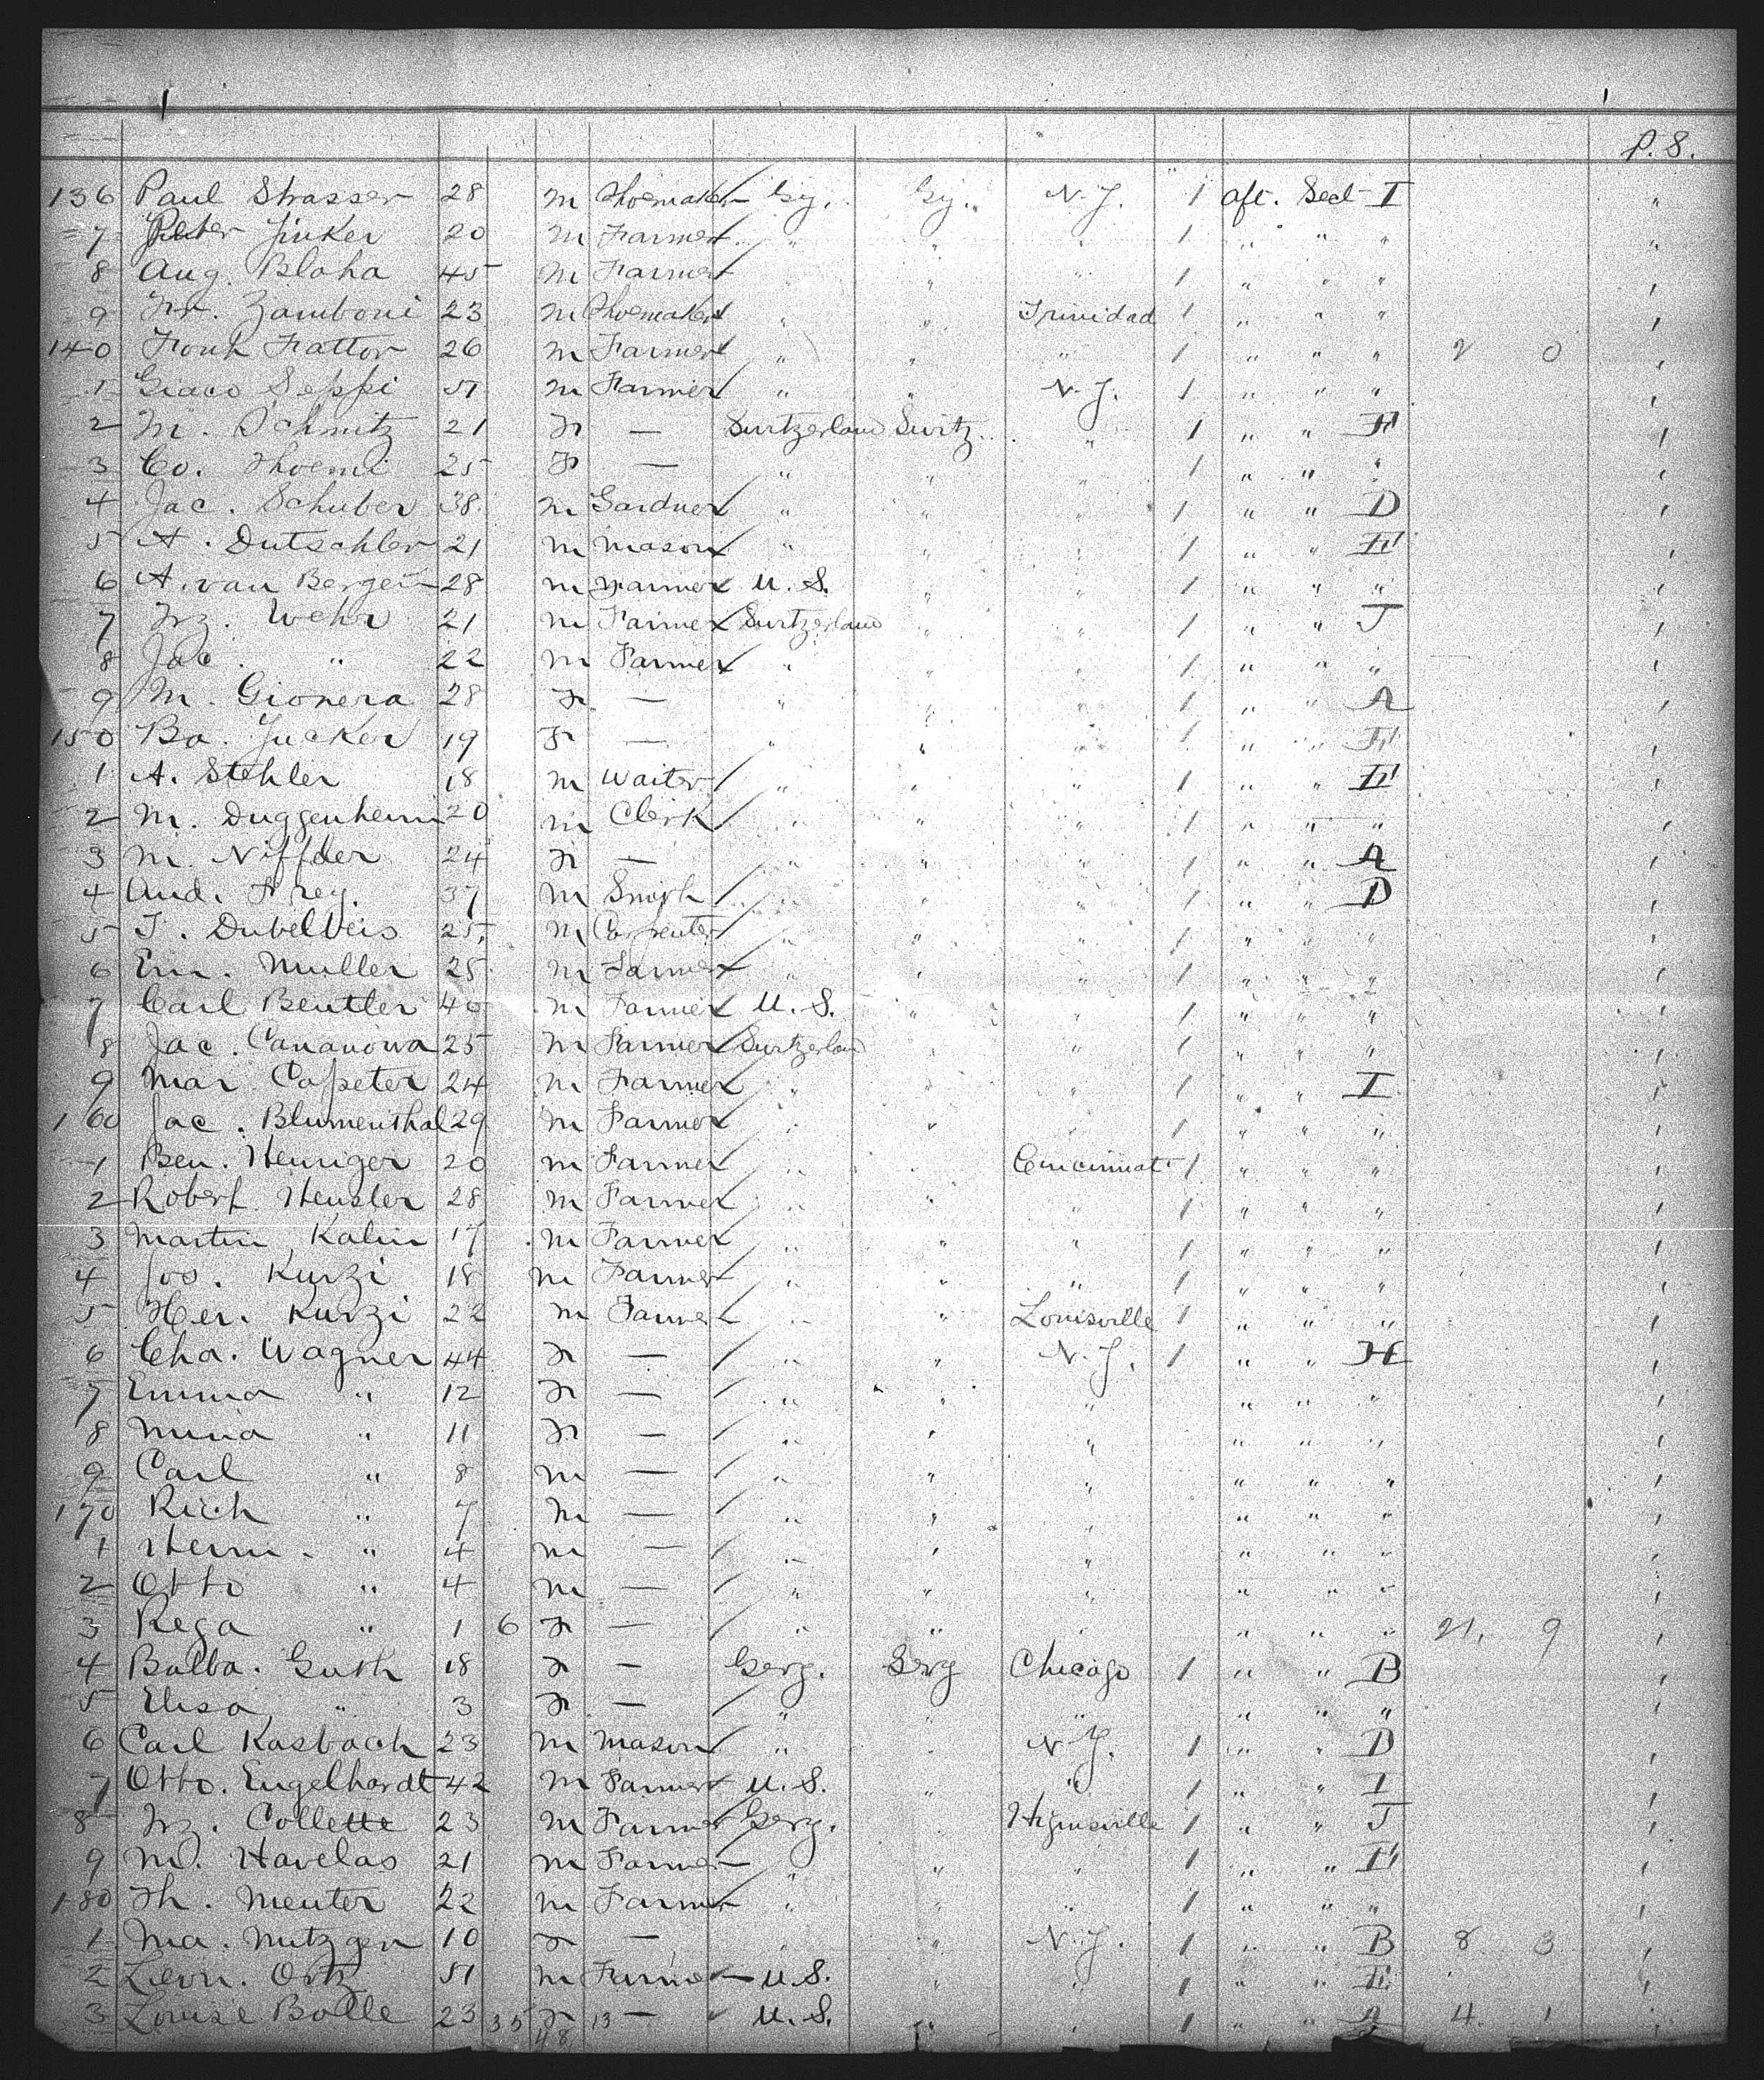 P.S.
136 Paul Strasser 28 M Shoemaker Gy. Gy. N.Y. 1 aft. Sect I "
7 Peter Jinker 20 M Farmer " " " 1 " " " "
8 Aug. Blaha 45 M Farmer " " 1 " " "
9 Fr. Zamboni 23 M Shoemaker " " Trinidad 1 " " "
140 Frank Fattor 26 M Farmer " " " 1 " " " 2 0
1 Giaco Seppi 51 M Farmer " " N.Y. 1 " " "
2 M. Schmitz 21 F — Switzerland Switz. " 1 " "
3 Co. Thoemi 25 F — " " " 1 " " "
4 Jac. Schuber 38 M Gardner " " " 1 " " D
5 A. Dutschler 21 M Mason " " " 1 " "
6 A. van Bergen 28 M Farmer U.S. " " 1 " " "
7 Frz. Wehr 21 M Farmer Switzerland " " 1 " " J
8 Jac. " 22 M Farmer " " " 1 " " "
9 M. Gionera 28 F — " " " 1 " " A
150 Ba. Jucker 19 F — " " " 1 " "
1 A. Stehler 18 M Waiter " " " 1 " "
2 M. Duggenheim 20 M Clerk " " " 1 " " "
3 M. Niffder 24 F — " " " 1 " " A
4 And. Frey. 37 M Smith " " " 1 " " D
5 J. Dubelbeis 25 M Carpenter " " " 1 " " "
6 Em. Muller 25 M Farmer " " " 1 " " "
7 Carl Beutler 40 M Farmer U.S. " " 1 " " "
8 Jac. Cananova 25 M Farmer Switzerland " " 1 " " "
9 Mar. Capeter 24 M Farmer " " " 1 " " I
160 Jac. Blumenthal 29 M Farmer " " " 1 " " "
1 Ben. Henriger 20 M Farmer " " Cincinnati 1 " " "
2 Robert Heusler 28 M Farmer " " " 1 " " "
3 Martin Kalin 17 M Farmer " " " 1 " " "
4 Jos. Kurzi 18 M Farmer " " " 1 " " "
5 Her. Kurzi 22 M Farmer " " Louisville 1 " " "
6 Cha. Wagner 44 F — " " N.Y. 1 " " H
7 Emma " 12 F — " " " " " "
8 Mina " 11 F — " " " " " "
9 Carl " 8 M — " " " " " "
170 Rich " 7 M — " " " " " "
1 Herm. " 4 M — " " " " " "
2 Otto " 4 M — " " " " " "
3 Rega " 1 6 F — " " " " " " 21, 9
4 Balba. Guth 18 F — Gerg. Gerg Chicago 1 " " B
5 Elisa " 3 F — " " " " " "
6 Carl Kasbach 23 M Mason " " N.Y. 1 " " D
7 Otto. Engelhardt 42 M Farmer U.S. " " 1 " " I
8 Frz. Collette 23 M Farmer Gerg. " Higinsville 1 " " J
9 M. Havelas 21 M Farmer " " " 1 " "
180 Th. Meuter 22 M Farmer " " " 1 " " "
1 Ma. Mutzgen 10 F — " " N.Y. 1 " " B 8 3
2 Leon. Ortz 51 M Farmer U.S. " " 1 " "
3 Louise Bolle 23 35 F 13 — U.S. " " 1 " " 4 1
48